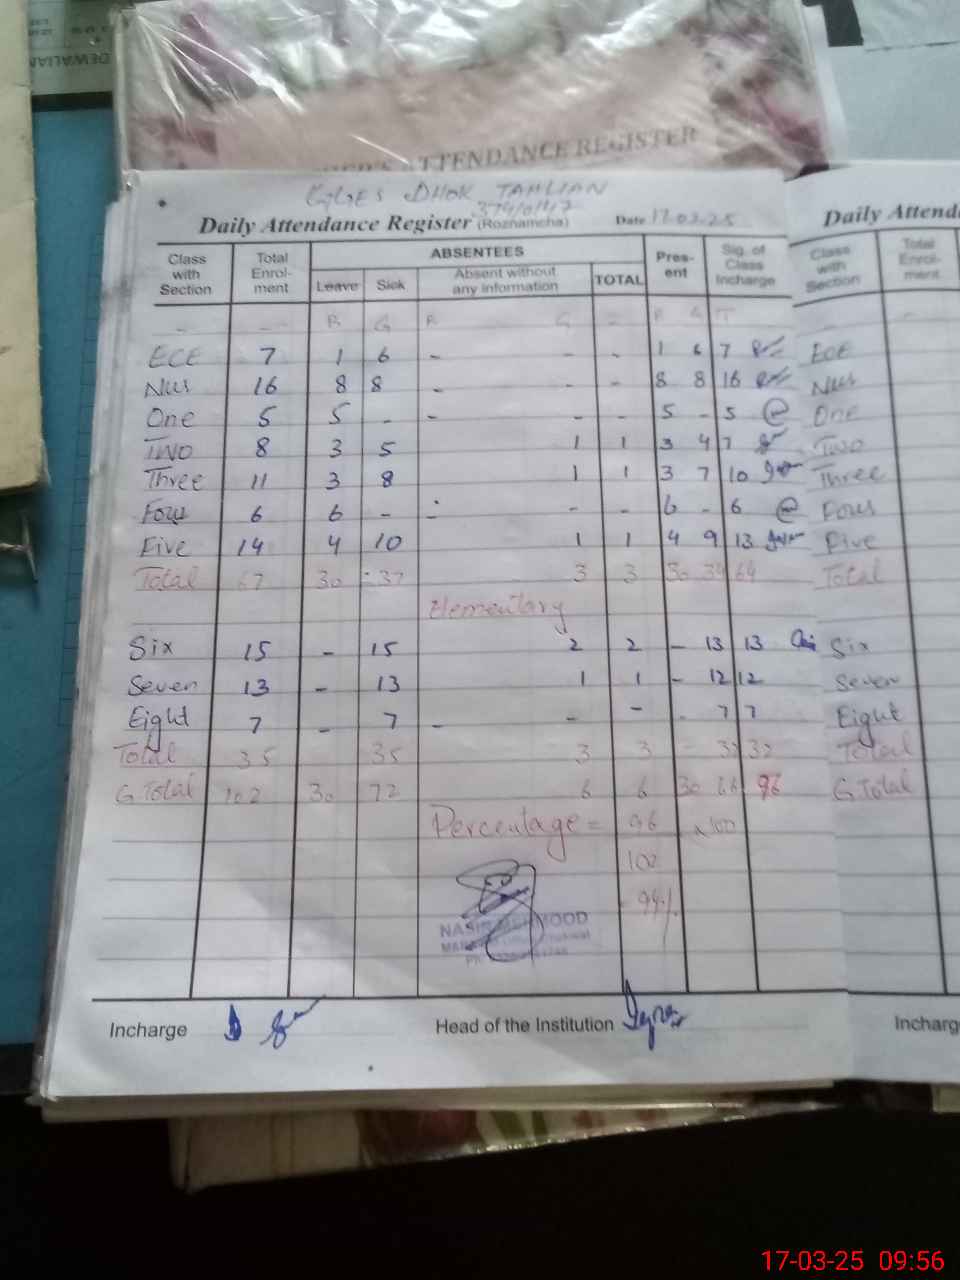 DEWALIAN
ATTENDANCE REGISTER
GGES DHOK TAHLIAN
37401117
Daily Attendance Register (Roznamcha) Date 17.03.25
Class with Section Total Enrol-ment ABSENTEES Pres-ent Sig. of Class Incharge
Leave Sick Absent without any information TOTAL
- - B G B G - B G T
ECE 7 1 6 - - - 1 6 7
Nur 16 8 8 - - - 8 8 16
One 5 5 - - - - 5 - 5
Two 8 3 5 1 1 3 4 7
Three 11 3 8 1 1 3 7 10
Four 6 6 - - - - 6 - 6
Five 14 4 10 1 1 4 9 13
Total 67 30 37 3 3 30 34 64
Elementary
Six 15 - 15 2 2 - 13 13
Seven 13 - 13 1 1 - 12 12
Eight 7 - 7 - - - 7 7
Total 35 35 3 3 - 32 32
G Total 102 30 72 6 6 30 66 96
Percentage = 96 x100
100
94%
NASIR MEHMOOD
Incharge Head of the Institution
Daily Attend
Class with Section Total Enrol-ment
ECE
Nur
One
Two
Three
Four
Five
Total
Six
Seven
Eight
Total
G Total
Incharg
17-03-25 09:56